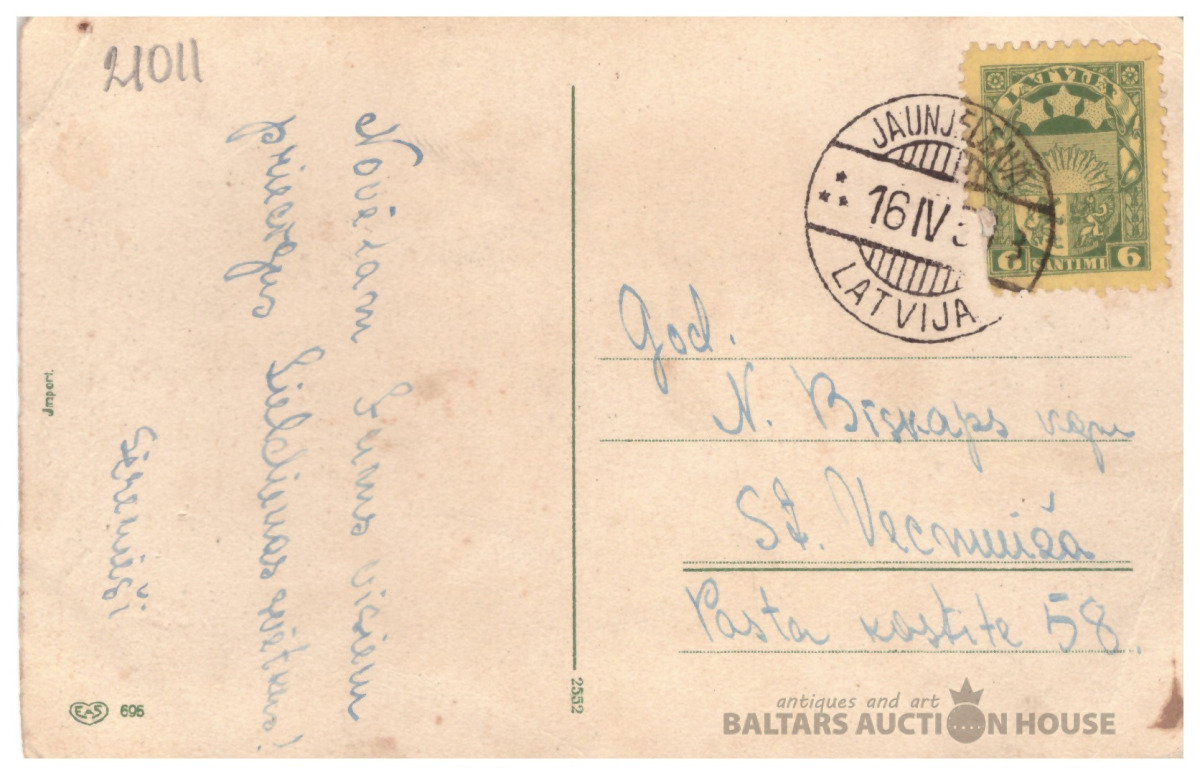 21011
Novēlam Jums visiem
priecīgus Lieldienas svētkus!
Import.
EAS 695
2552
JAUNJELGAVA
16 IV 3
LATVIJA
LATVIJA
6 SANTIMI 6
God.
N. Bīskaps kgm
St. Vecmuiža
Pasta kastīte 58.
antiques and art
BALTARS AUCTION HOUSE